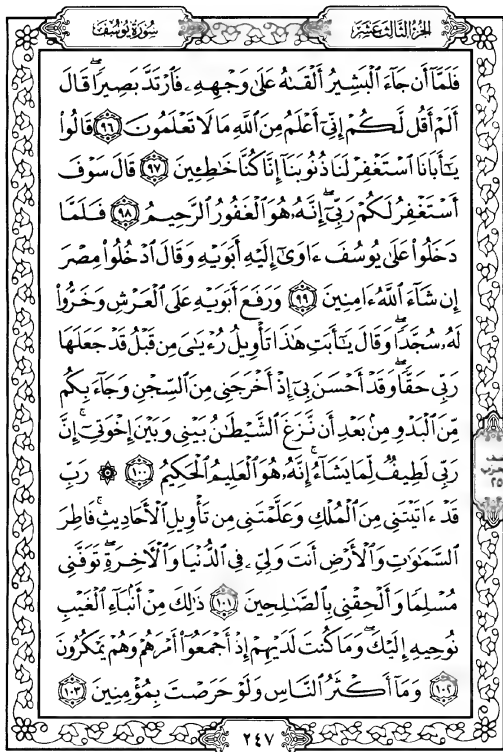 الجزء الثالث عشر
سورة يوسف
فَلَمَّآ أَن جَآءَ ٱلْبَشِيرُ أَلْقَىٰهُ عَلَىٰ وَجْهِهِۦ فَٱرْتَدَّ بَصِيرًا ۖ قَالَ
أَلَمْ أَقُل لَّكُمْ إِنِّىٓ أَعْلَمُ مِنَ ٱللَّهِ مَا لَا تَعْلَمُونَ ٩٦ قَالُوا۟
يَٰٓأَبَانَا ٱسْتَغْفِرْ لَنَا ذُنُوبَنَآ إِنَّا كُنَّا خَٰطِـِٔينَ ٩٧ قَالَ سَوْفَ
أَسْتَغْفِرُ لَكُمْ رَبِّىٓ ۖ إِنَّهُۥ هُوَ ٱلْغَفُورُ ٱلرَّحِيمُ ٩٨ فَلَمَّا
دَخَلُوا۟ عَلَىٰ يُوسُفَ ءَاوَىٰٓ إِلَيْهِ أَبَوَيْهِ وَقَالَ ٱدْخُلُوا۟ مِصْرَ
إِن شَآءَ ٱللَّهُ ءَامِنِينَ ٩٩ وَرَفَعَ أَبَوَيْهِ عَلَى ٱلْعَرْشِ وَخَرُّوا۟
لَهُۥ سُجَّدًا ۖ وَقَالَ يَٰٓأَبَتِ هَٰذَا تَأْوِيلُ رُءْيَٰىَ مِن قَبْلُ قَدْ جَعَلَهَا
رَبِّى حَقًّا ۖ وَقَدْ أَحْسَنَ بِىٓ إِذْ أَخْرَجَنِى مِنَ ٱلسِّجْنِ وَجَآءَ بِكُم
مِّنَ ٱلْبَدْوِ مِنۢ بَعْدِ أَن نَّزَغَ ٱلشَّيْطَٰنُ بَيْنِى وَبَيْنَ إِخْوَتِىٓ ۚ إِنَّ
رَبِّى لَطِيفٌ لِّمَا يَشَآءُ ۚ إِنَّهُۥ هُوَ ٱلْعَلِيمُ ٱلْحَكِيمُ ١٠٠ ۞ رَبِّ
قَدْ ءَاتَيْتَنِى مِنَ ٱلْمُلْكِ وَعَلَّمْتَنِى مِن تَأْوِيلِ ٱلْأَحَادِيثِ ۚ فَاطِرَ
ٱلسَّمَٰوَٰتِ وَٱلْأَرْضِ أَنتَ وَلِىِّۦ فِى ٱلدُّنْيَا وَٱلْـَٔاخِرَةِ ۖ تَوَفَّنِى
مُسْلِمًا وَأَلْحِقْنِى بِٱلصَّٰلِحِينَ ١٠١ ذَٰلِكَ مِنْ أَنۢبَآءِ ٱلْغَيْبِ
نُوحِيهِ إِلَيْكَ ۖ وَمَا كُنتَ لَدَيْهِمْ إِذْ أَجْمَعُوٓا۟ أَمْرَهُمْ وَهُمْ يَمْكُرُونَ
١٠٢ وَمَآ أَكْثَرُ ٱلنَّاسِ وَلَوْ حَرَصْتَ بِمُؤْمِنِينَ ١٠٣
٢٥
٢٤٧